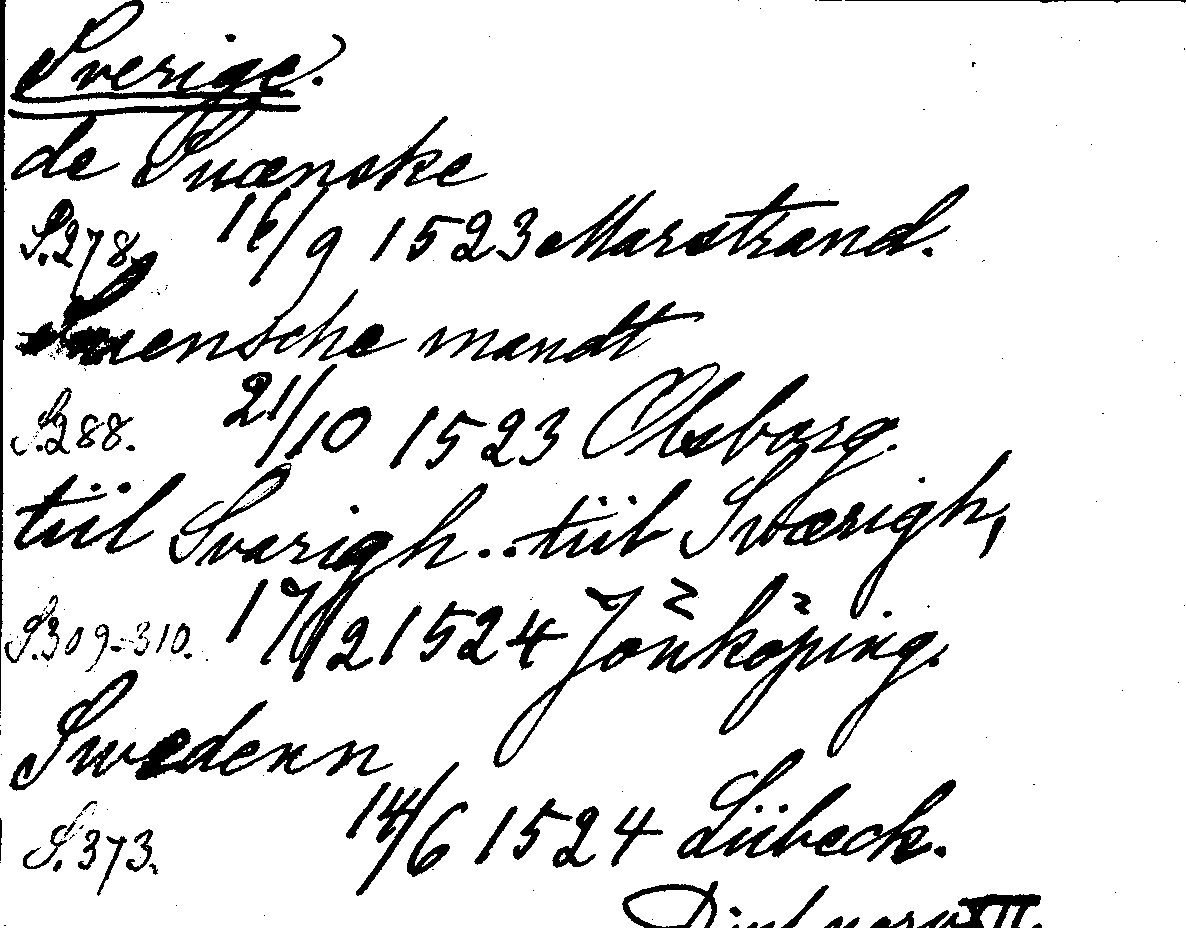 Sverige.
de Suænske
S.278. 16/9 1523 Marstrand.
Suensche mandt
S.288. 21/10 1523 Olsborg.
tiil Svarigh... tiil Sværigh,
S.309-310. 17/2 1524 Jönköping.
Swedenn
S.373. 14/6 1524 Lübeck.
Dipl. norv. XII.